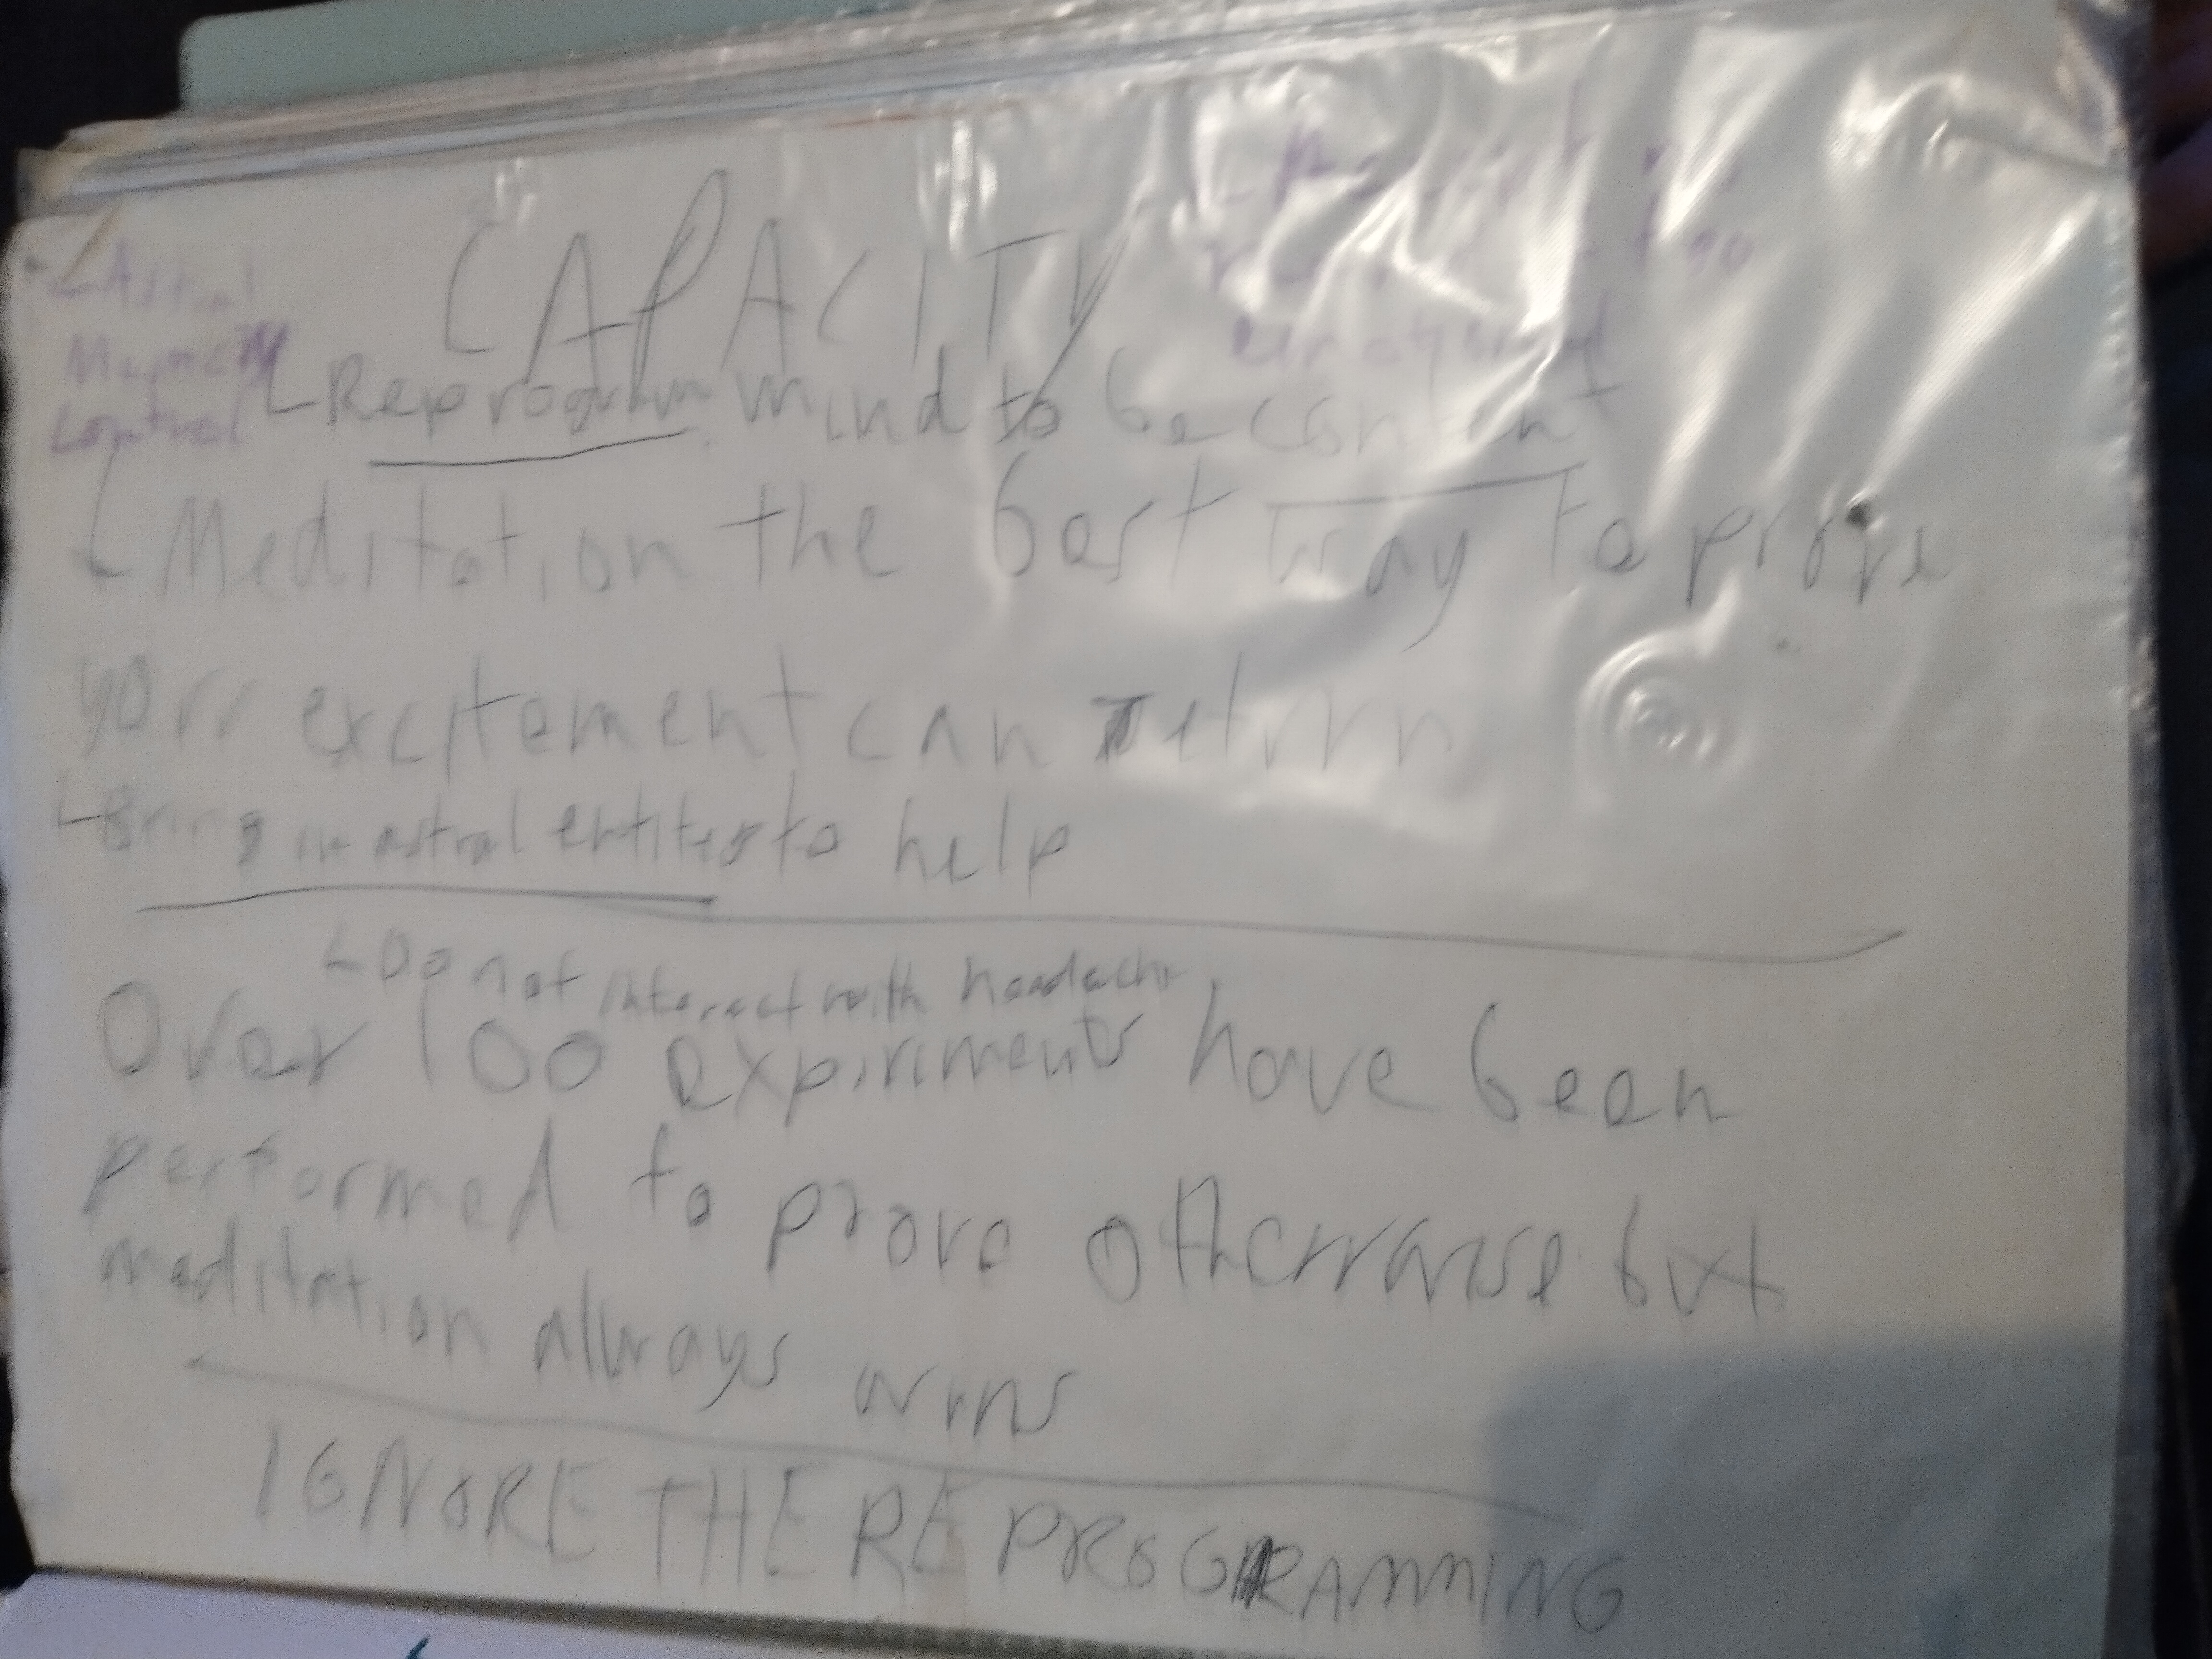 CAPACITY
Astral
control
emotional
Reprogram mind to be content
Meditation the best way to prove
your excitement can return
Bring in astral entities to help
Do not interact with headache
Over 100 expiriments have been
performed to prove otherwise but
meditation always wins
IGNORE THE REPROGRAMMING